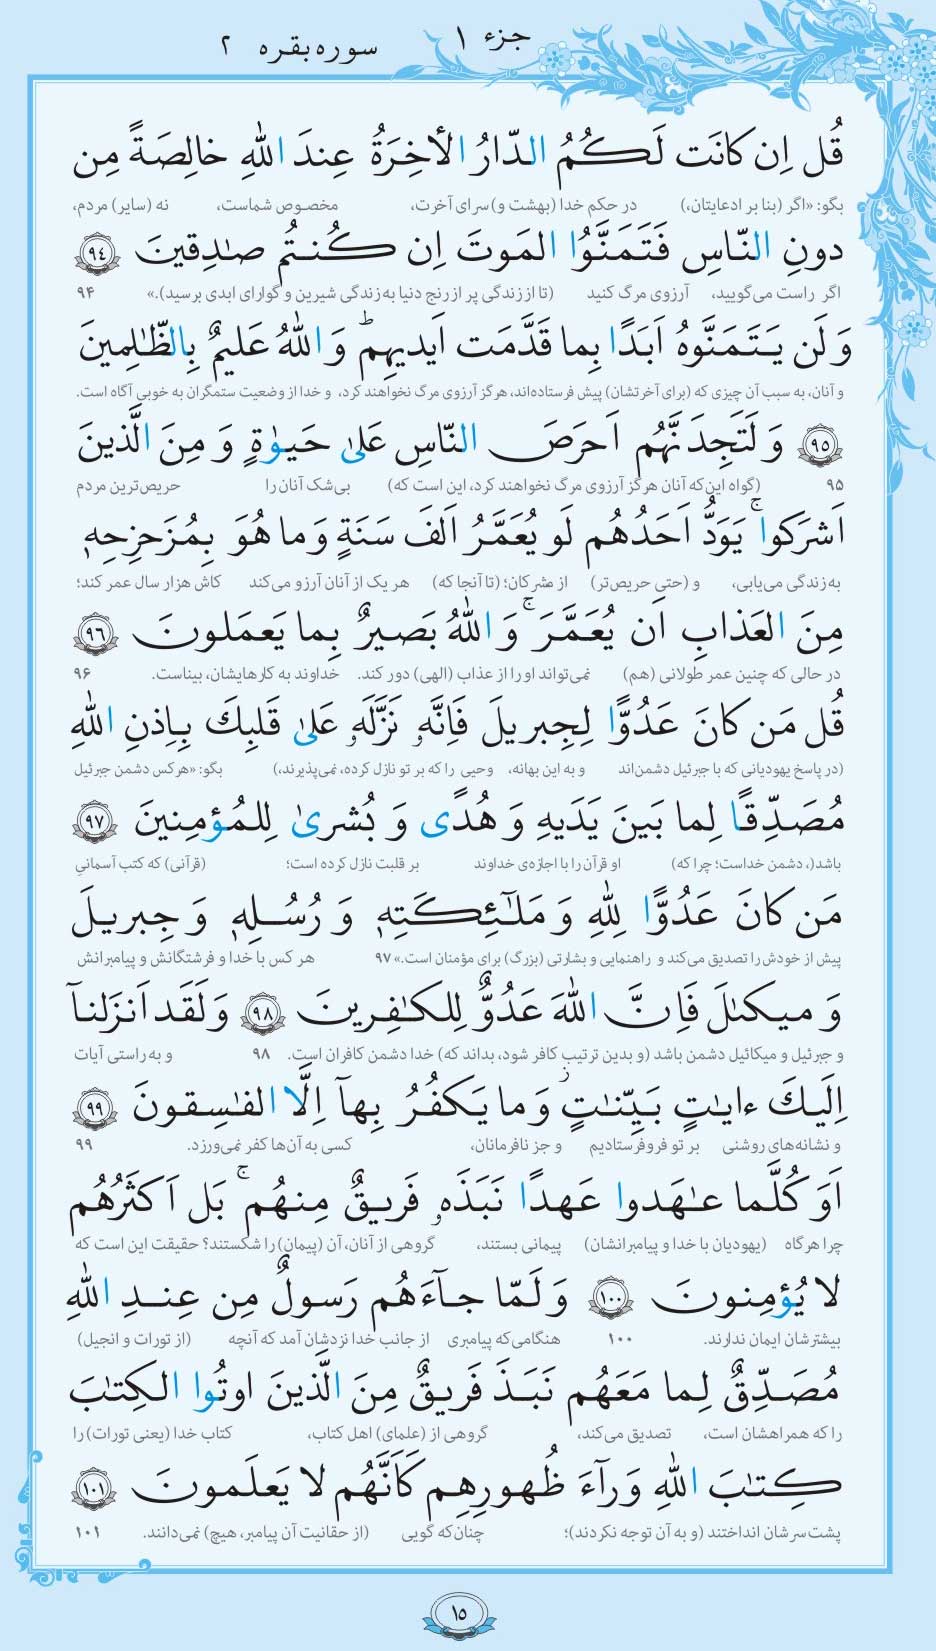 جزء ۱
سوره بقره ۲
قُل اِن كانَت لَكُمُ الدّارُ الأخِرَةُ عِندَ اللهِ خالِصَةً مِن
بگو: «اگر (بنا بر ادعایتان،) در حکم خدا (بهشت و) سرای آخرت، مخصوص شماست، نه (سایر) مردم،
دونِ النّاسِ فَتَمَنَّوُا المَوتَ اِن كُنتُم صـٰدِقينَ ﴿٩٤﴾
اگر راست می‌گویید، آرزوی مرگ کنید (تا از زندگی پر از رنج دنیا به زندگی شیرین و گوارای ابدی برسید).» ۹۴
وَ لَن يَتَمَنَّوهُ اَبَدًا بِما قَدَّمَت اَيديهِم ۗ وَ اللهُ عَليمٌ بِالظّـٰلِمينَ
و آنان، به سبب آن چیزی که (برای آخرتشان) پیش فرستاده‌اند، هرگز آرزوی مرگ نخواهند کرد، و خدا از وضعیت ستمگران به خوبی آگاه است.
﴿٩٥﴾ وَ لَتَجِدَنَّهُم اَحرَصَ النّاسِ عَلىٰ حَيوٰةٍ وَ مِنَ الَّذينَ
۹۵ (گواه این‌که آنان هرگز آرزوی مرگ نخواهند کرد، این است که) بی‌شک آنان را حریص‌ترین مردم
اَشرَكوا ۚ يَوَدُّ اَحَدُهُم لَو يُعَمَّرُ اَلفَ سَنَةٍ وَ ما هُوَ بِمُزَحزِحِهٖ
به زندگی می‌یابی، و (حتی حریص‌تر) از مشرکان؛ (تا آنجا که) هر یک از آنان آرزو می‌کند کاش هزار سال عمر کند؛
مِنَ العَذابِ اَن يُعَمَّرَ ۚ وَ اللهُ بَصيرٌ بِما يَعمَلونَ ﴿٩٦﴾
در حالی که چنین عمر طولانی (هم) نمی‌تواند او را از عذاب (الهی) دور کند. خداوند به کارهایشان، بیناست. ۹۶
قُل مَن كانَ عَدُوًّا لِجِبريلَ فَاِنَّهٗ نَزَّلَهٗ عَلىٰ قَلبِكَ بِاِذنِ اللهِ
(در پاسخ یهودیانی که با جبرئیل دشمن‌اند و به این بهانه، وحیی را که بر تو نازل کرده، نمی‌پذیرند،) بگو: «هرکس دشمن جبرئیل
مُصَدِّقًا لِما بَينَ يَدَيهِ وَ هُدًى وَ بُشرىٰ لِلمُؤمِنينَ ﴿٩٧﴾
باشد(، دشمن خداست؛ چرا که) او قرآن را با اجازه‌ی خداوند بر قلبت نازل کرده است؛ (قرآنی) که کتب آسمانیِ
مَن كانَ عَدُوًّا لِلّٰهِ وَ مَلـٰٓئِكَتِهٖ وَ رُسُلِهٖ وَ جِبريلَ
پیش از خودش را تصدیق می‌کند و راهنمایی و بشارتی (بزرگ) برای مؤمنان است.» ۹۷ هر کس با خدا و فرشتگانش و پیامبرانش
وَ ميكـٰلَ فَاِنَّ اللهَ عَدُوٌّ لِلكـٰفِرينَ ﴿٩٨﴾ وَ لَقَد اَنزَلنآ
و جبرئیل و میکائیل دشمن باشد (و بدین ترتیب کافر شود، بداند که) خدا دشمن کافران است. ۹۸ و به راستی آیات
اِلَيكَ ءايـٰتٍ بَيِّنـٰتٍ ز وَ ما يَكفُرُ بِهآ اِلَّا الفـٰسِقونَ ﴿٩٩﴾
و نشانه‌های روشنی بر تو فرو فرستادیم و جز نافرمانان، کسی به آن‌ها کفر نمی‌ورزد. ۹۹
اَوَ كُلَّما عـٰهَدوا عَهدًا نَبَذَهٗ فَريقٌ مِنهُم ۚ بَل اَكثَرُهُم
چرا هرگاه (یهودیان با خدا و پیامبرانشان) پیمانی بستند، گروهی از آنان، آن (پیمان) را شکستند؟ حقیقت این است که
لا يُؤمِنونَ ﴿١٠٠﴾ وَ لَمّا جآءَهُم رَسولٌ مِن عِندِ اللهِ
بیشترشان ایمان ندارند. ۱۰۰ هنگامی‌که پیامبری از جانب خدا نزدشان آمد که آنچه (از تورات و انجیل)
مُصَدِّقٌ لِما مَعَهُم نَبَذَ فَريقٌ مِنَ الَّذينَ اوتُوا الكِتـٰبَ
را که همراهشان است، تصدیق می‌کند، گروهی از (علمای) اهل کتاب، کتاب خدا (یعنی تورات) را
كِتـٰبَ اللهِ وَرآءَ ظُهورِهِم كَاَنَّهُم لا يَعلَمونَ ﴿١٠١﴾
پشت سرشان انداختند (و به آن توجه نکردند)؛ چنان‌که گویی (از حقانیت آن پیامبر، هیچ) نمی‌دانند. ۱۰۱
۱۵